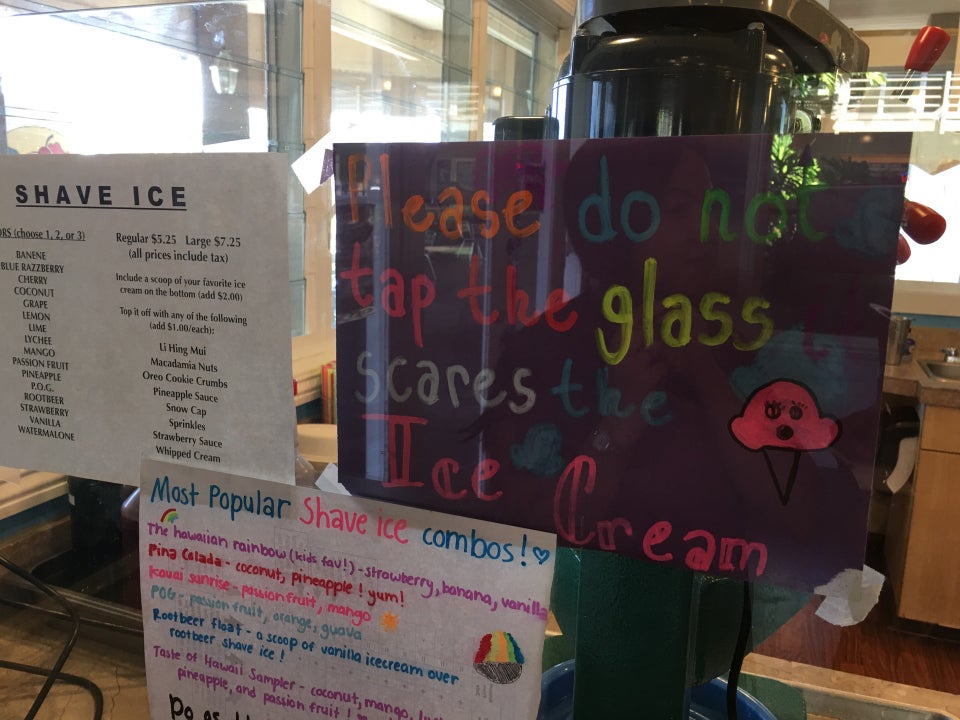 SHAVE ICE
ORS (choose 1, 2, or 3)
BANENE
BLUE RAZZBERRY
CHERRY
COCONUT
GRAPE
LEMON
LIME
LYCHEE
MANGO
PASSION FRUIT
PINEAPPLE
P.O.G.
ROOTBEER
STRAWBERRY
VANILLA
WATERMALONE
Regular $5.25 Large $7.25
(all prices include tax)
Include a scoop of your favorite ice
cream on the bottom (add $2.00)
Top it off with any of the following
(add $1.00/each):
Li Hing Mui
Macadamia Nuts
Oreo Cookie Crumbs
Pineapple Sauce
Snow Cap
Sprinkles
Strawberry Sauce
Whipped Cream
Please do not
tap the glass
scares the
Ice Cream
Most Popular Shave ice combos!
The hawaiian rainbow (kids fav!) - strawberry, banana, vanilla
Pina Colada - coconut, pineapple! yum!
Kauai sunrise - passion fruit, mango
POG - passion fruit, orange, guava
Rootbeer float - a scoop of vanilla icecream over
rootbeer shave ice!
Taste of Hawaii Sampler - coconut, mango,
pineapple, and passion fruit!